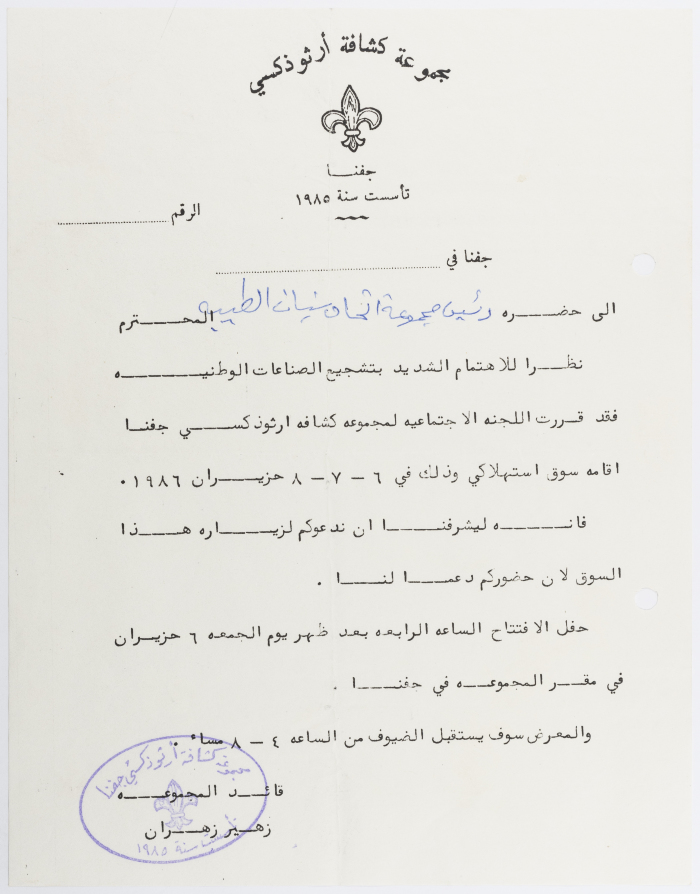 مجموعة كشافة أرثوذكسي
جفنــا
تأسست سنة ١٩٨٥
الرقم
جفنا في
الى حضـــره رئيس مجموعة اتحاد شبات الطيبه المحـــترم
نظــرا للاهتمام الشديد بتشجيع الصناعات الوطنيـــه
فقد قــررت اللجنه الاجتماعيه لمجموعه كشافه ارثوذكســي جفنــا
اقامه سوق استهلاكي وذلك في ٦ - ٧ - ٨ حزيــران ١٩٨٦ ٠
فانــــه ليشرفنـــا ان ندعوكم لزيــاره هــذا
السوق لان حضوركم دعمــا لنــا .
حفل الافتتاح الساعه الرابعه بعد ظهر يوم الجمعه ٦ حزيــران
في مقــر المجموعــه في جفنــا .
والمعرض سوف يستقبل الضيوف من الساعه ٤ - ٨ مساء .
قائــد المجموعــه
زهــير زهــران
مجموعة كشافة أرثوذكسي جفنا
تأسست سنة ١٩٨٥